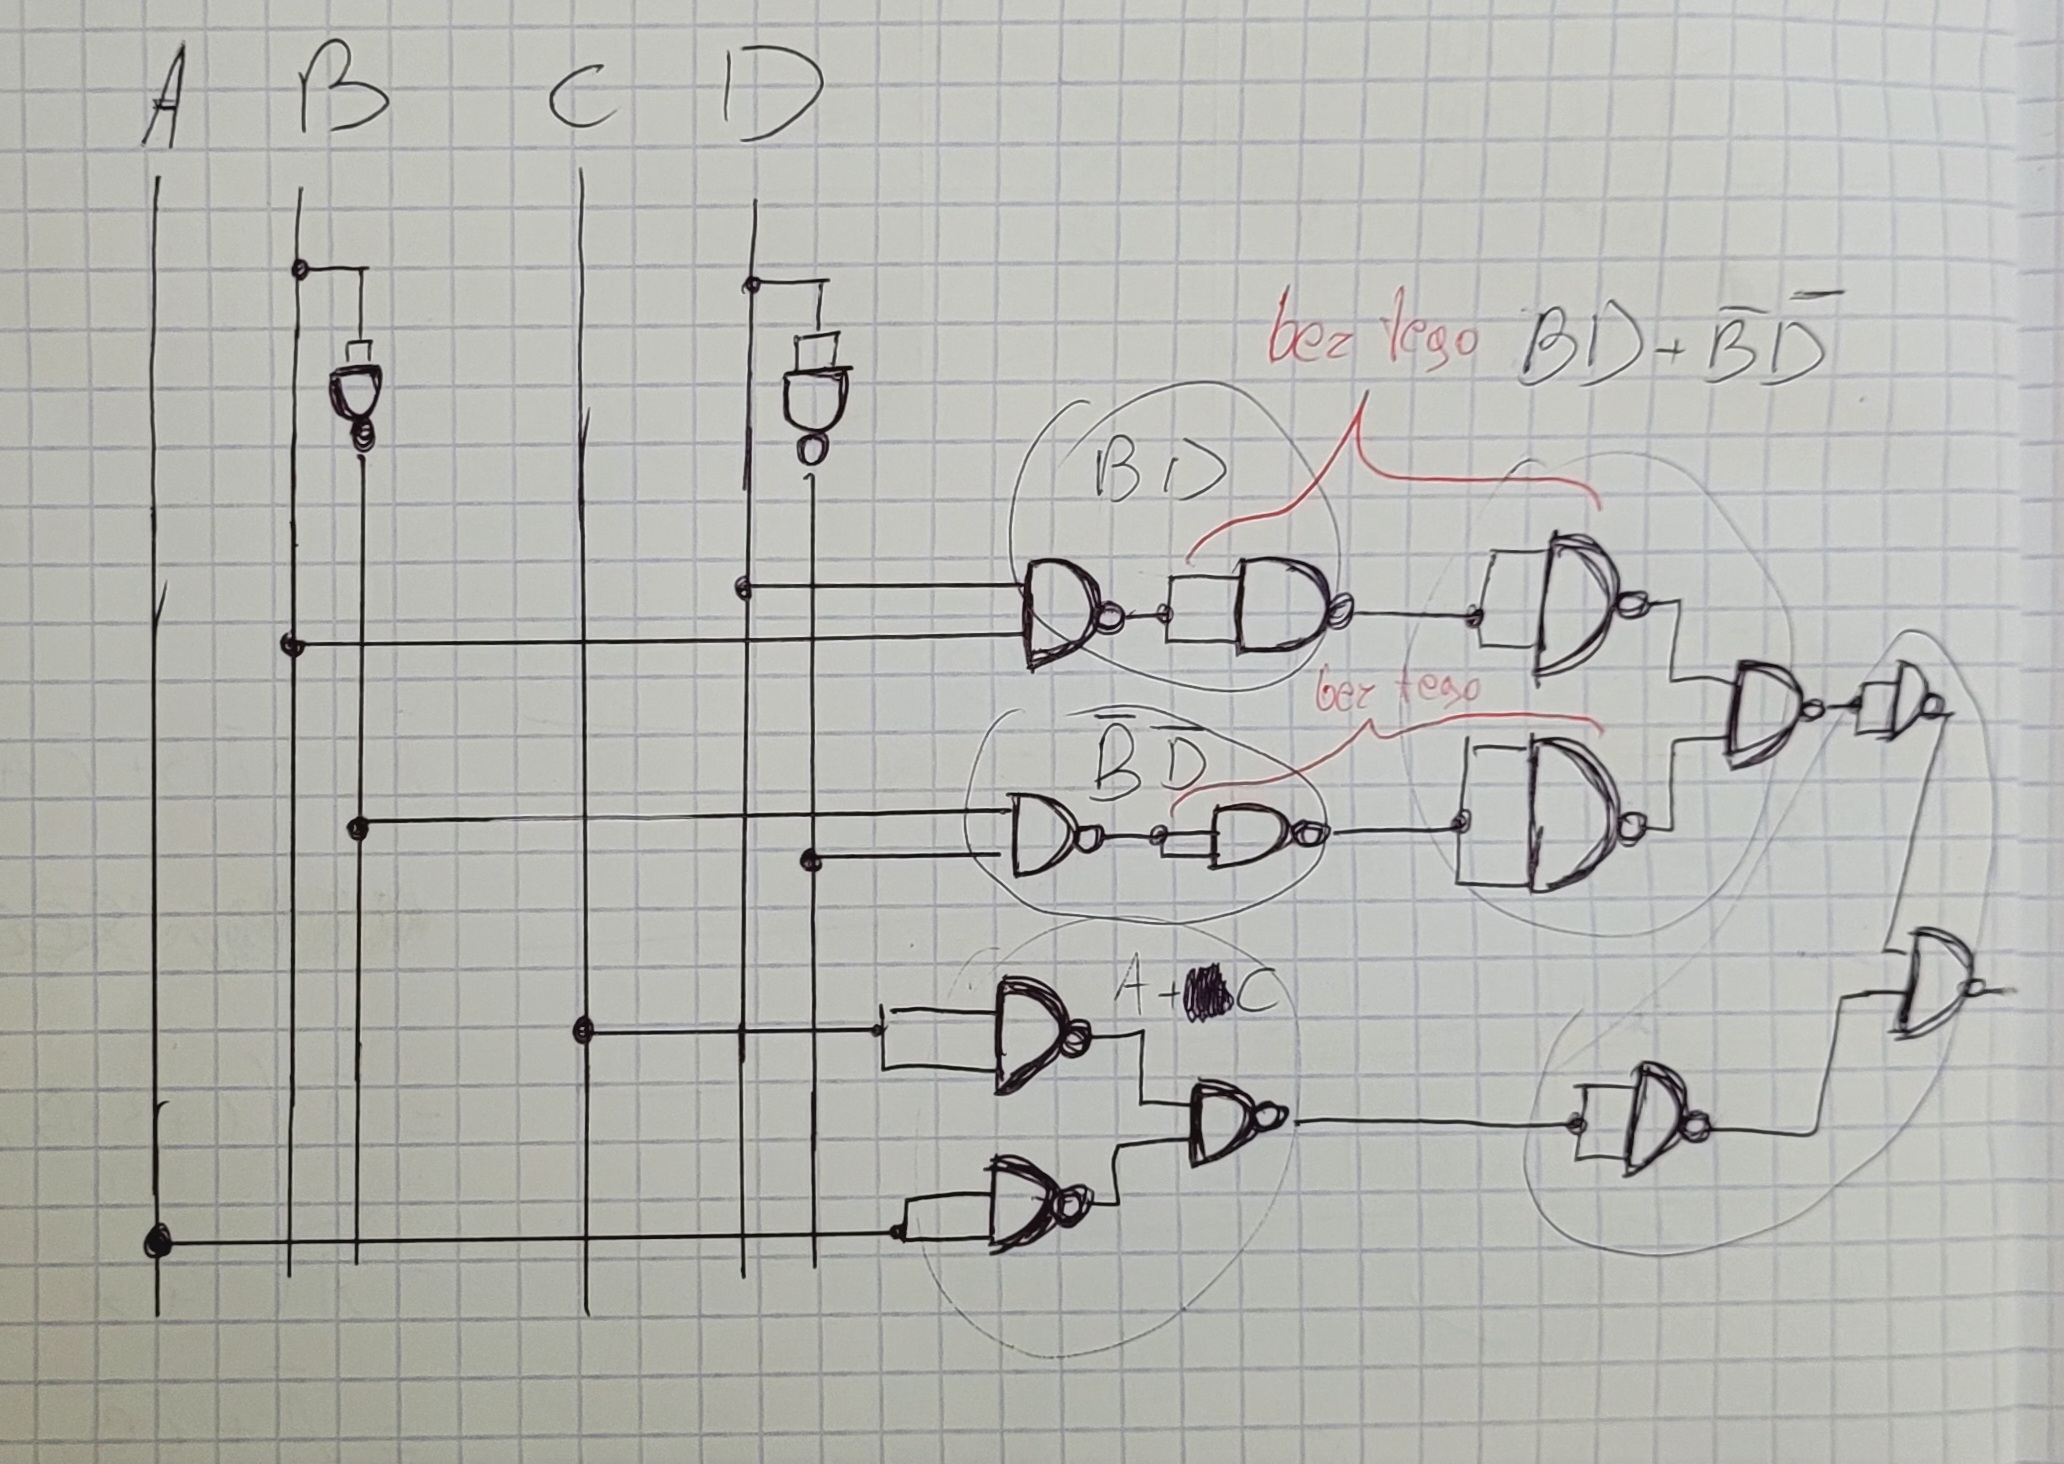 A B C D
bez tego BD + B̅ D̅
BD
bez tego
B̅ D̅
A + C